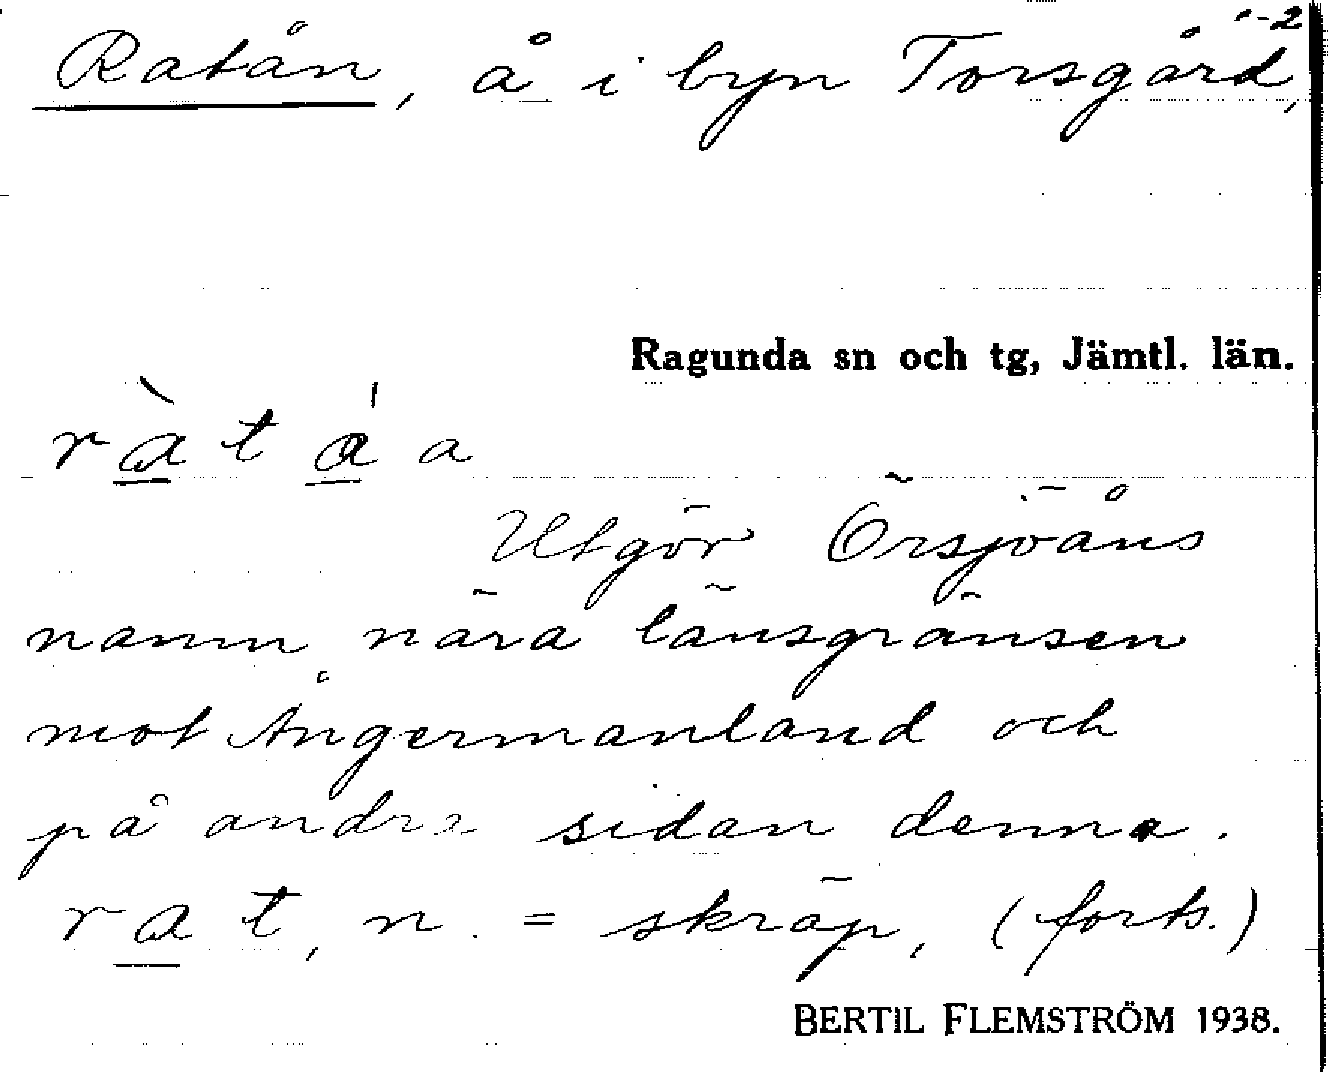 Ratån, å i byn Torsgård,
Ragunda sn och tg, Jämtl. län.
r à t á a
Utgör Örsjöåns
namn nära länsgränsen
mot Ångermanland och
på andra sidan denna.
r a t, n. = skräp, (forts.)
BERTIL FLEMSTRÖM 1938.